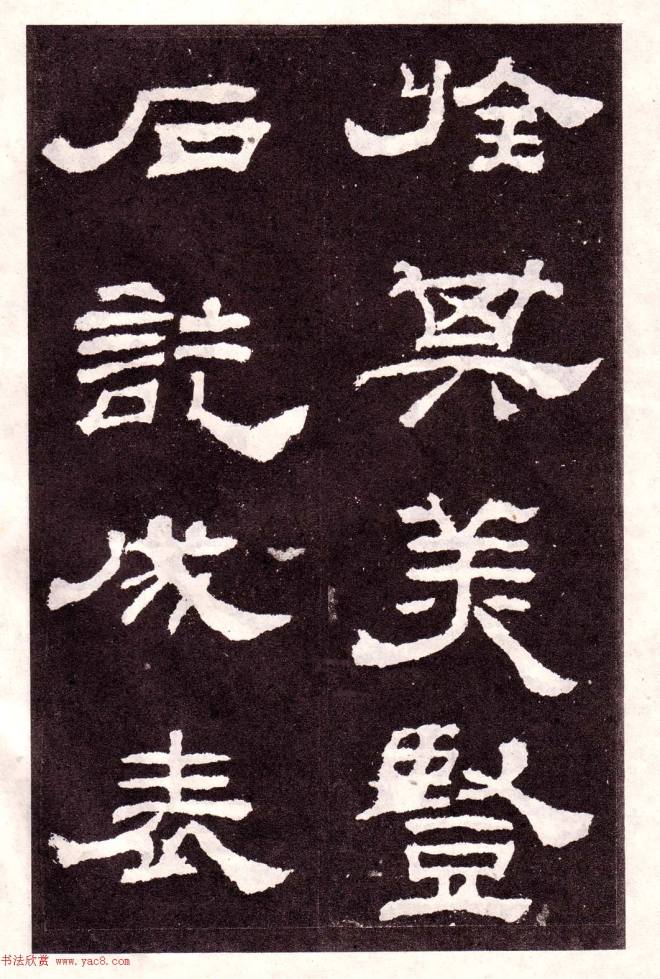 旌其美豎
石訖成表
书法欣赏 www.yac8.com